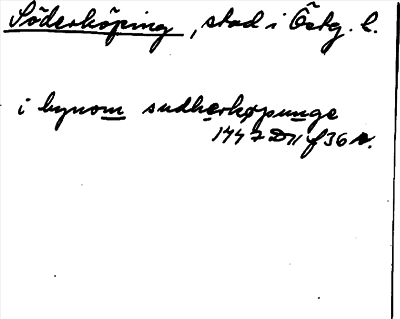 Söderköping, stad i Östg. l.
i bynom sudherkøpunge
1447 D11 f 36 r.